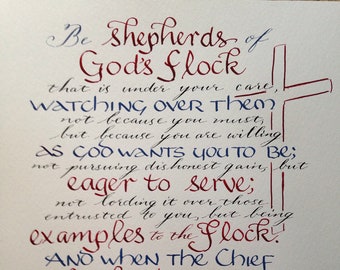 Be shepherds of
God's flock
that is under your care,
WATCHING OVER THEM
not because you must,
but because you are willing
AS GOD WANTS YOU TO BE;
not pursuing dishonest gain, but
eager to serve;
not lording it over those
entrusted to you, but being
examples to the flock.
AND WHEN THE CHIEF